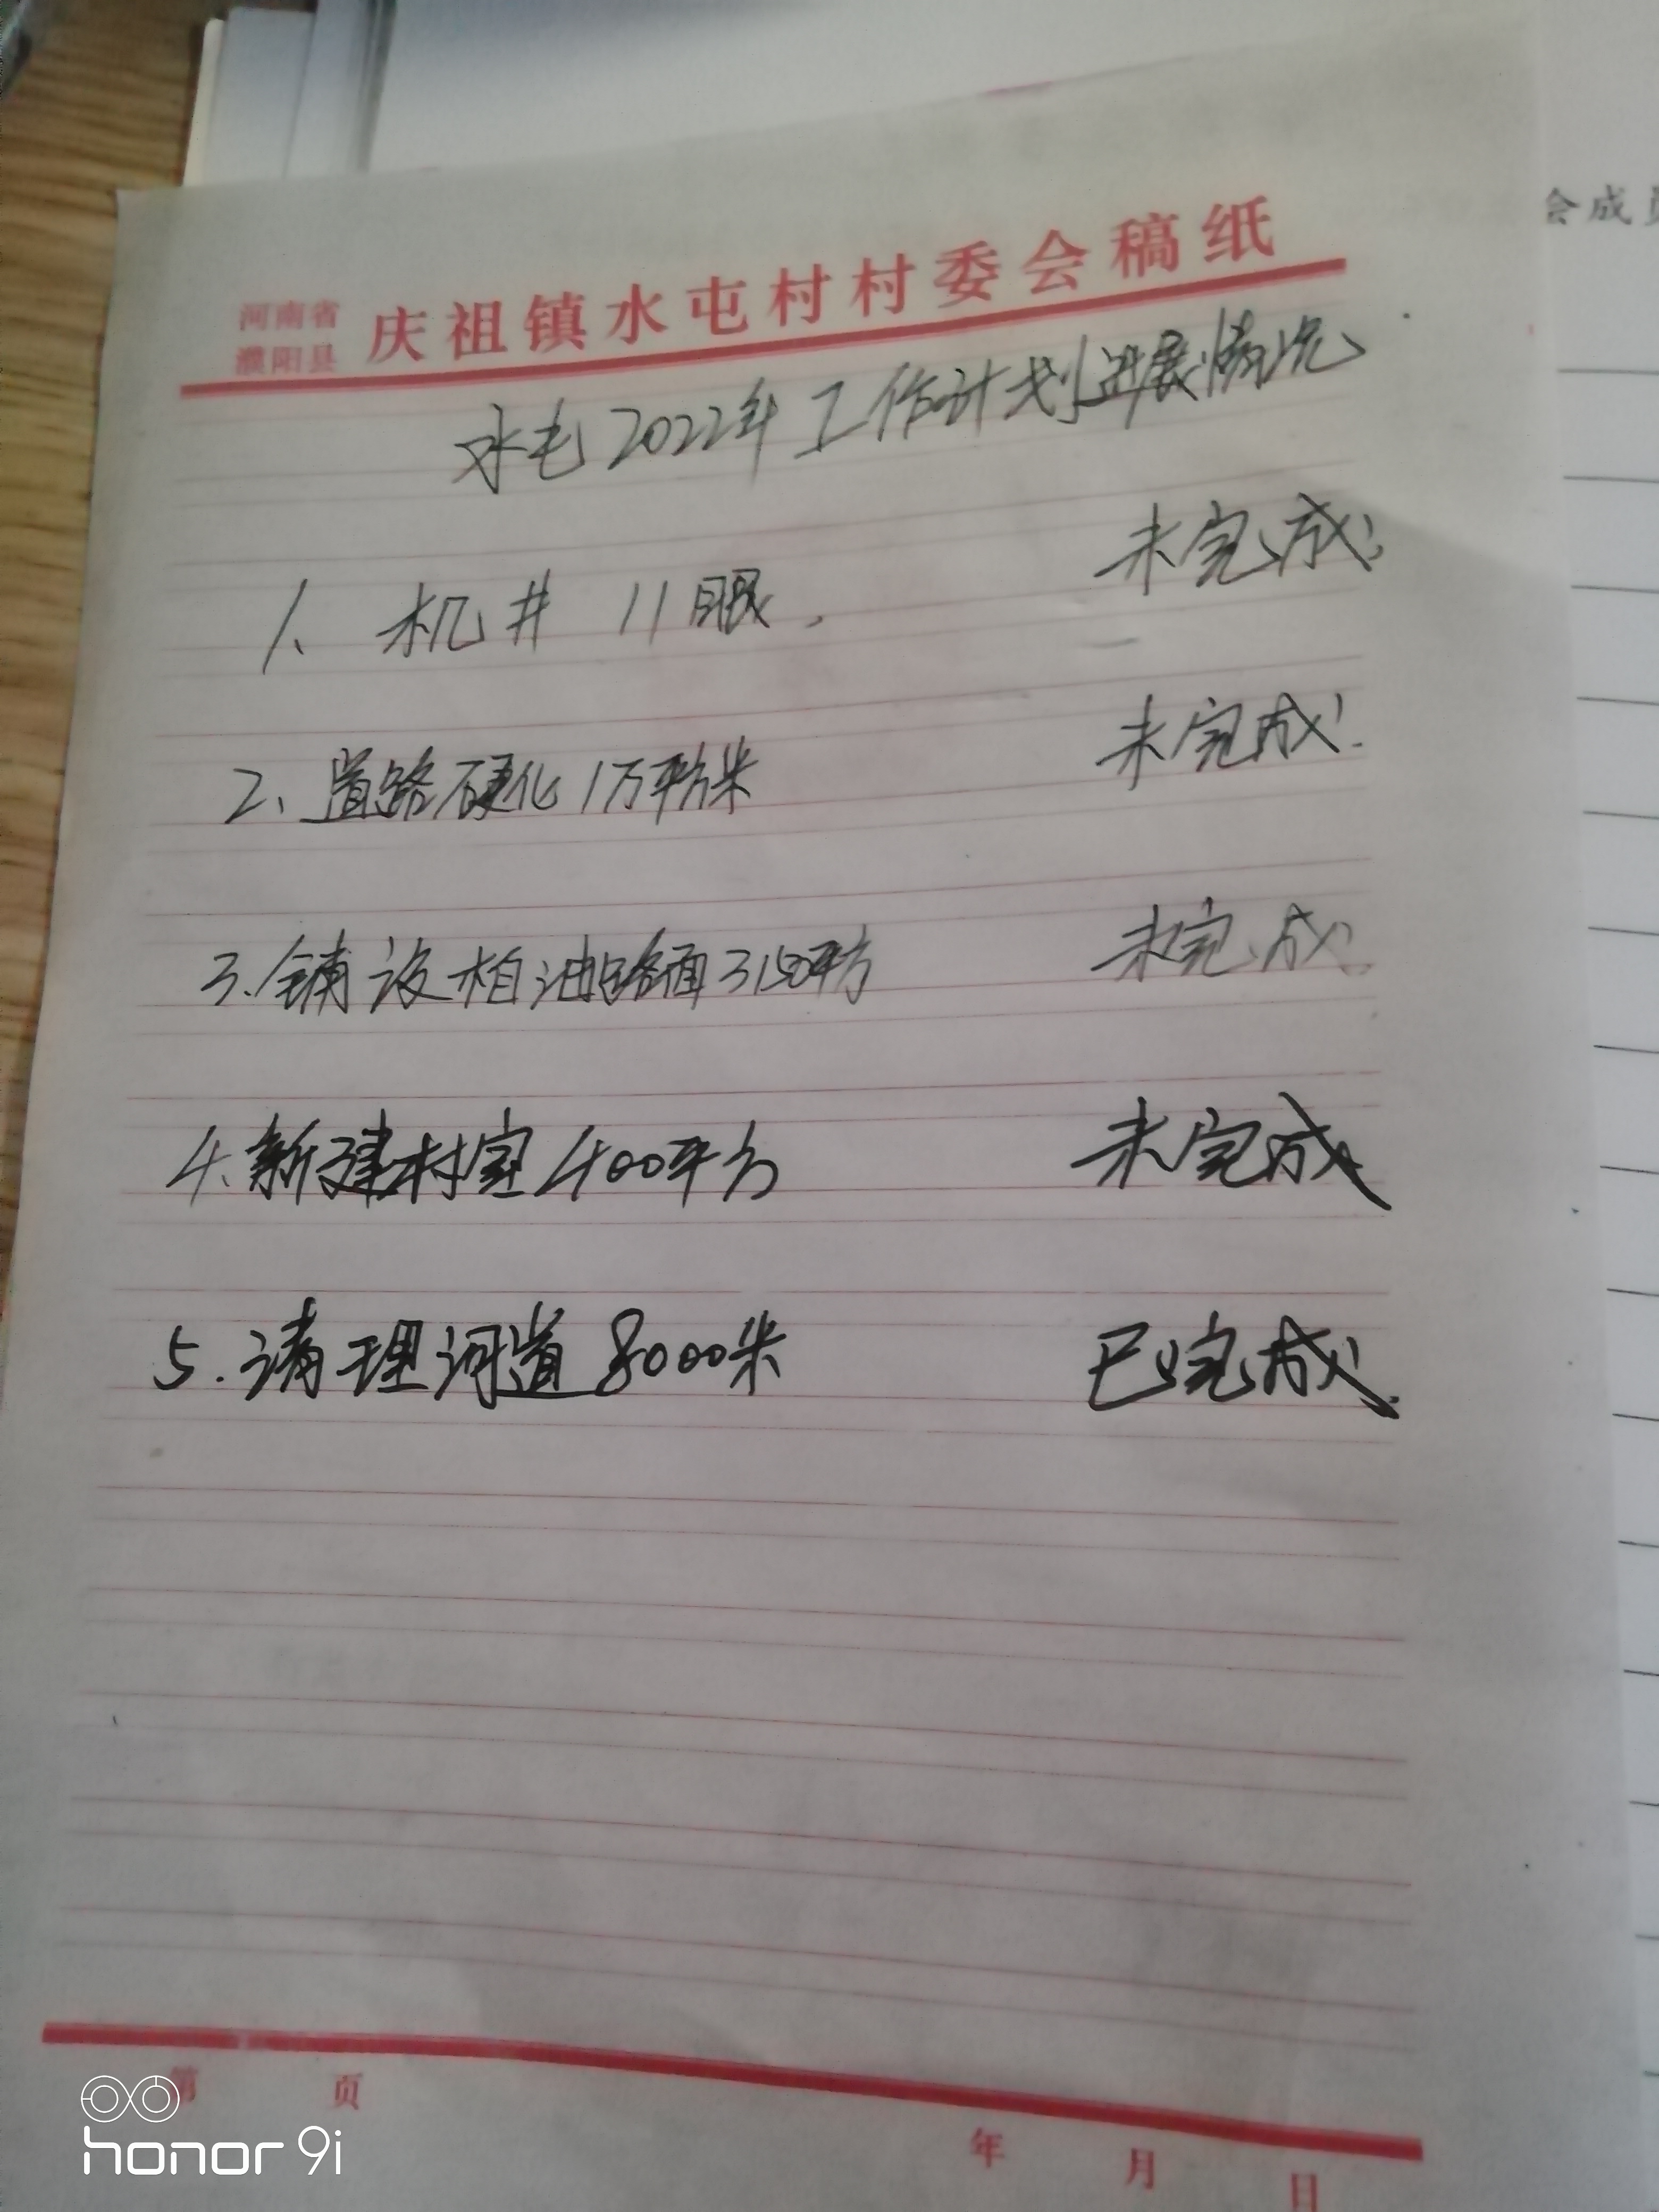 会成员
河南省
濮阳县
庆祖镇水屯村村委会稿纸
水屯2022年工作计划进展情况
1、机井 11眼, 未完成
2、道路硬化1万平方米 未完成
3.铺设柏油路面3150平方 未完成
4.新建村室400平方 未完成
5.清理河道8000米 已完成
第 页
年 月 日
honor 9i